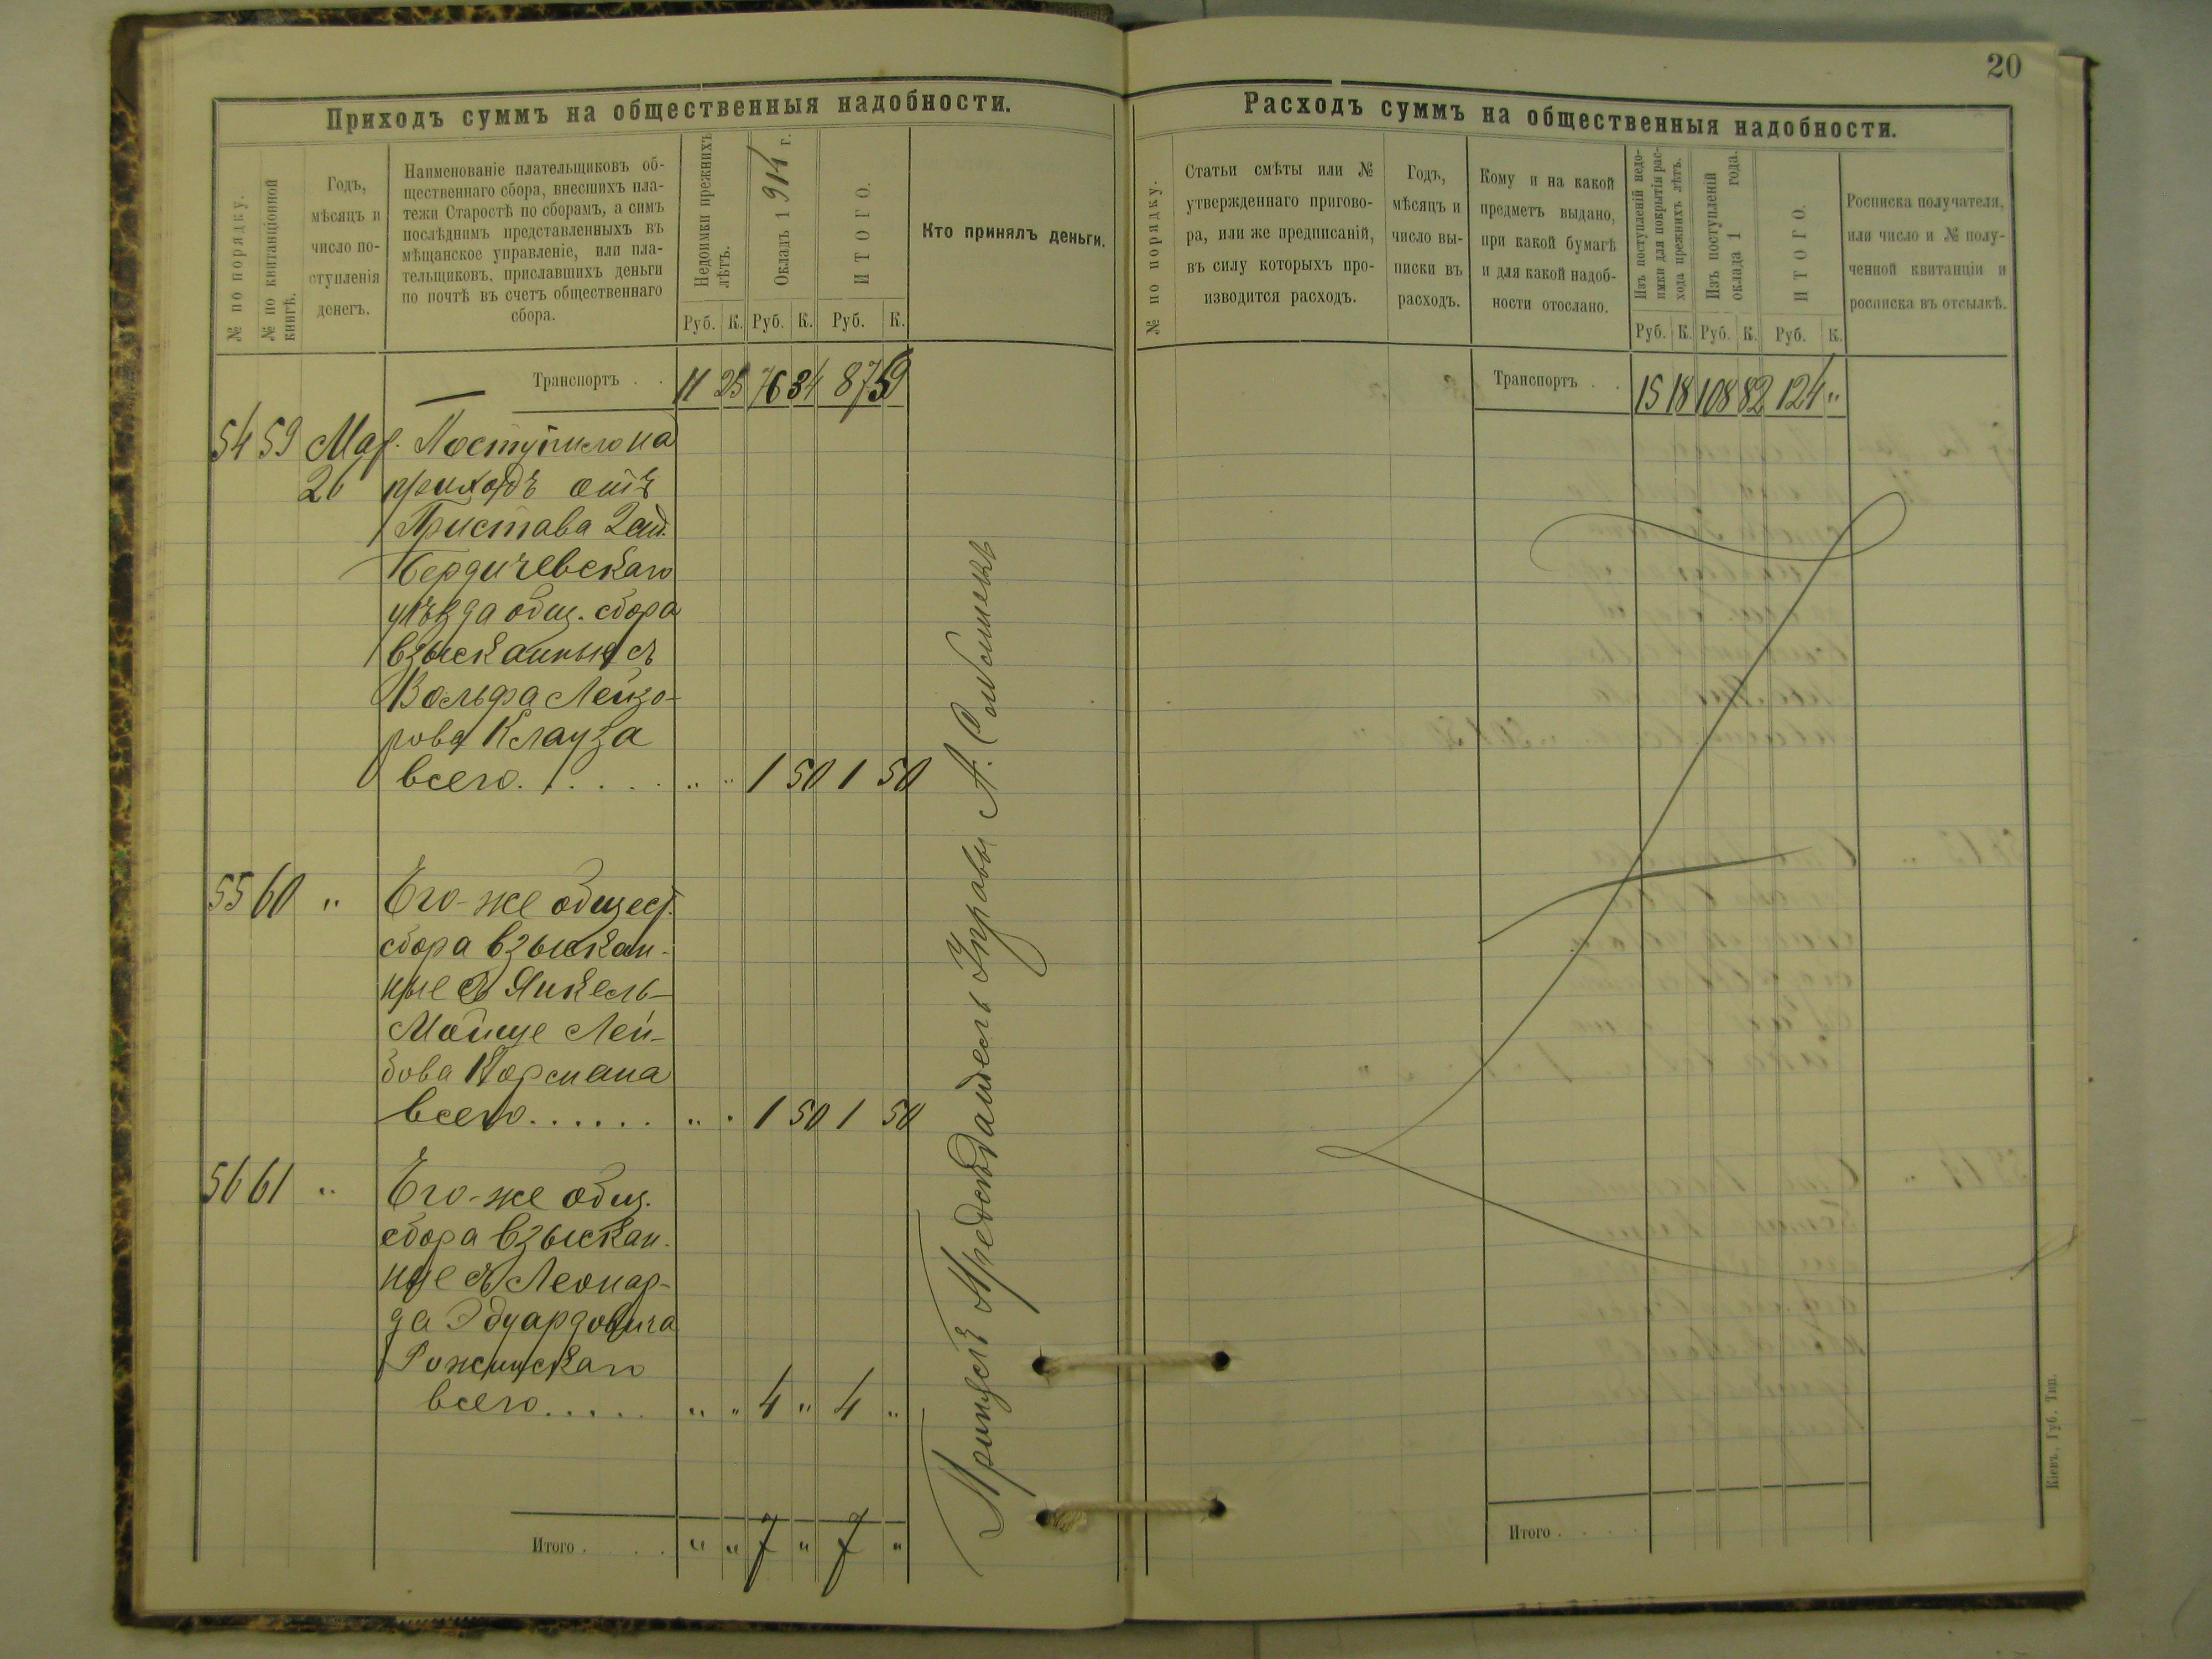 20
Приходъ суммъ на общественныя надобности.
№ по порядку.
№ по квитанціонной
книгѣ.
Годъ,
мѣсяцъ и
число по-
ступленія
денегъ.
Наименованіе плательщиковъ об-
щественнаго сбора, внесшихъ пла-
тежи Старостѣ по сборамъ, а симъ
послѣднимъ представленныхъ въ
мѣщанское управленіе, или пла-
тельщиковъ, приславшихъ деньги
по почтѣ въ счетъ общественнаго
сбора.
Недоимки прежнихъ
лѣтъ.
Окладъ 1914 г.
ИТОГО.
Кто принялъ деньги.
Руб. К. Руб. К. Руб. К.
Транспортъ . . 11 25 76 34 87 59
54 59 Мар. Поступило на
26 приходъ отъ
Пристава
Бердичевскаго
уѣзда общ. сбора
взысканныя съ
Вольфа Лейзо-
рова Клауза
всего. . . . . . „ „ 1 50 1 50
55 60 „ Его-же общест.
сбора взыскан-
ные съ Янкель-
Мойше Лей-
бова Корсмана
всего. . . . . . „ „ 1 50 1 50
56 61 „ Его-же общ.
сбора взыскан-
ные съ Леонар-
да Эдуардовича
Рожинскаго
всего. . . . . „ „ 4 „ 4 „
Итого . . . . „ „ 7 „ 7 „
Предсѣдатель Управы А.
Расходъ суммъ на общественныя надобности.
№ по порядку.
Статьи смѣты или №
утвержденнаго пригово-
ра, или же предписаній,
въ силу которыхъ про-
изводится расходъ.
Годъ,
мѣсяцъ и
число вы-
писки въ
расходъ.
Кому и на какой
предметъ выдано,
при какой бумагѣ
и для какой надоб-
ности отослано.
Изъ поступленій недо-
имки для покрытія рас-
хода прежнихъ лѣтъ.
Изъ поступленій
оклада 1 года.
ИТОГО.
Росписка получателя,
или число и № полу-
ченной квитанціи и
росписка въ отсылкѣ.
Руб. К. Руб. К. Руб. К.
Транспортъ . . 15 18 108 82 124 „
Итого . . . .
Кіевъ, Губ. Тип.